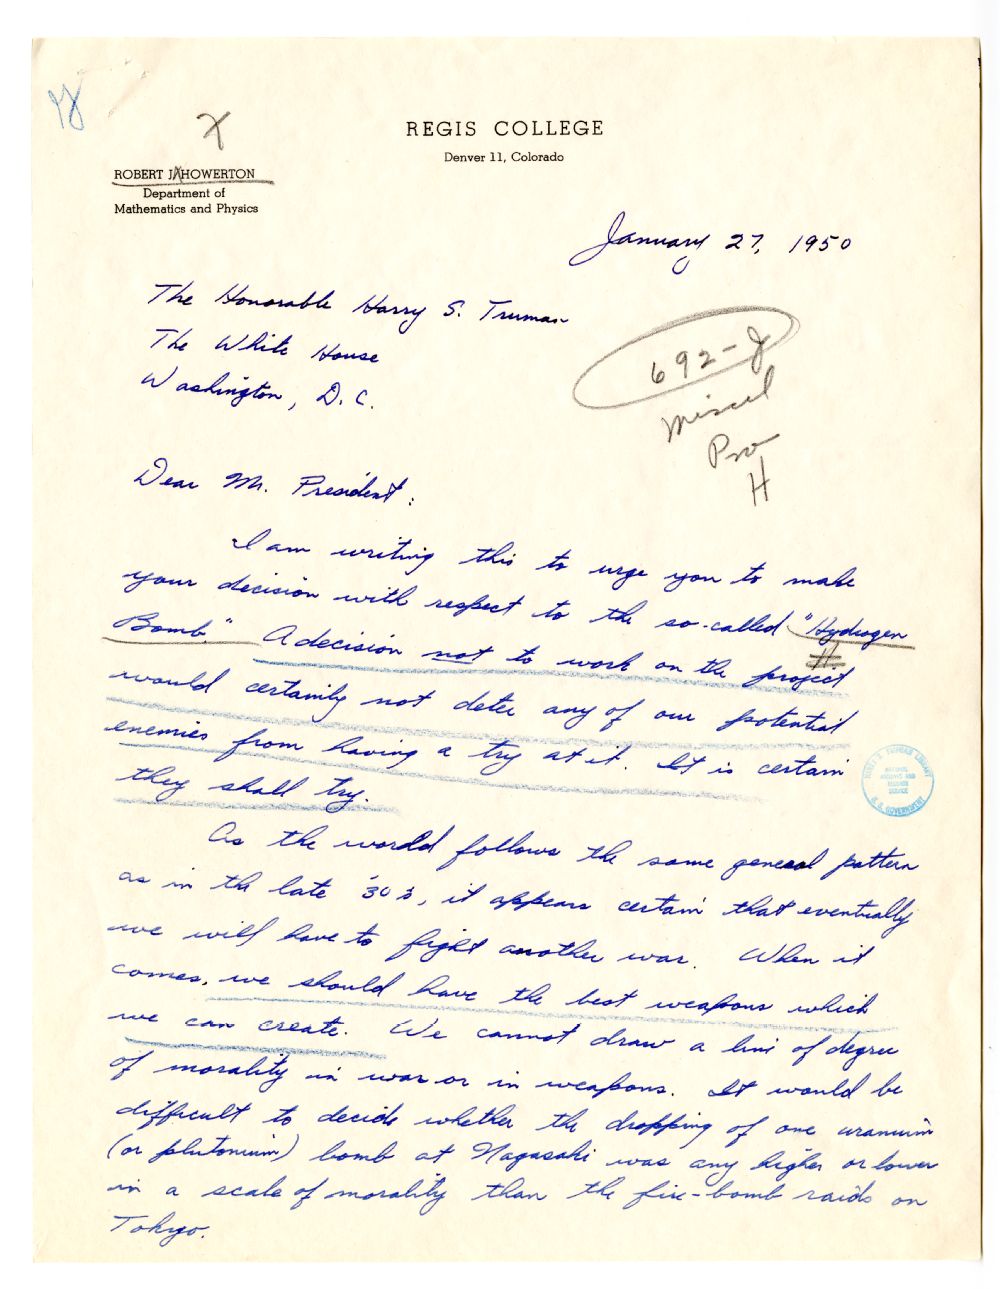 REGIS COLLEGE
Denver 11, Colorado
ROBERT J. HOWERTON
Department of
Mathematics and Physics
January 27, 1950
The Honorable Harry S. Truman
The White House
Washington, D.C.
692-J
Miscel
Pro
H
Dear Mr. President:
I am writing this to urge you to make
your decision with respect to the so-called "Hydrogen
Bomb." A decision not to work on the project
H
would certainly not deter any of our potential
enemies from having a try at it. It is certain
they shall try.
HARRY S. TRUMAN LIBRARY
NATIONAL
ARCHIVES AND
RECORDS
SERVICE
U.S. GOVERNMENT
As the world follows the same general pattern
as in the late '30's, it appears certain that eventually
we will have to fight another war. When it
comes, we should have the best weapons which
we can create. We cannot draw a line of degree
of morality in war or in weapons. It would be
difficult to decide whether the dropping of one uranium
(or plutonium) bomb at Nagasaki was any higher or lower
in a scale of morality than the fire-bomb raids on
Tokyo.